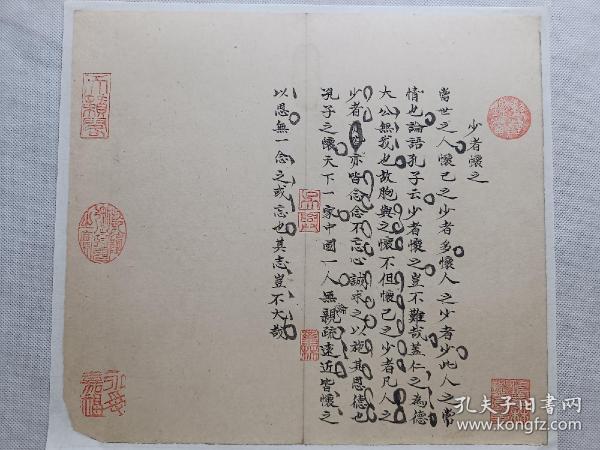 少者懷之
當世之人懷己之少者多懷人之少者少此人之常
情也論語孔子云少者懷之豈不難哉蓋仁之為德
大公無我也故胞與之懷不但懷己之少者凡人之
少者亦皆念念不忘心誠求之以施其恩德也
況孔子之懷天下一家中國一人無論親疏遠近皆懷之
以恩無一念之或忘也其志豈不大哉
孔夫子旧书网
www.kongfz.com